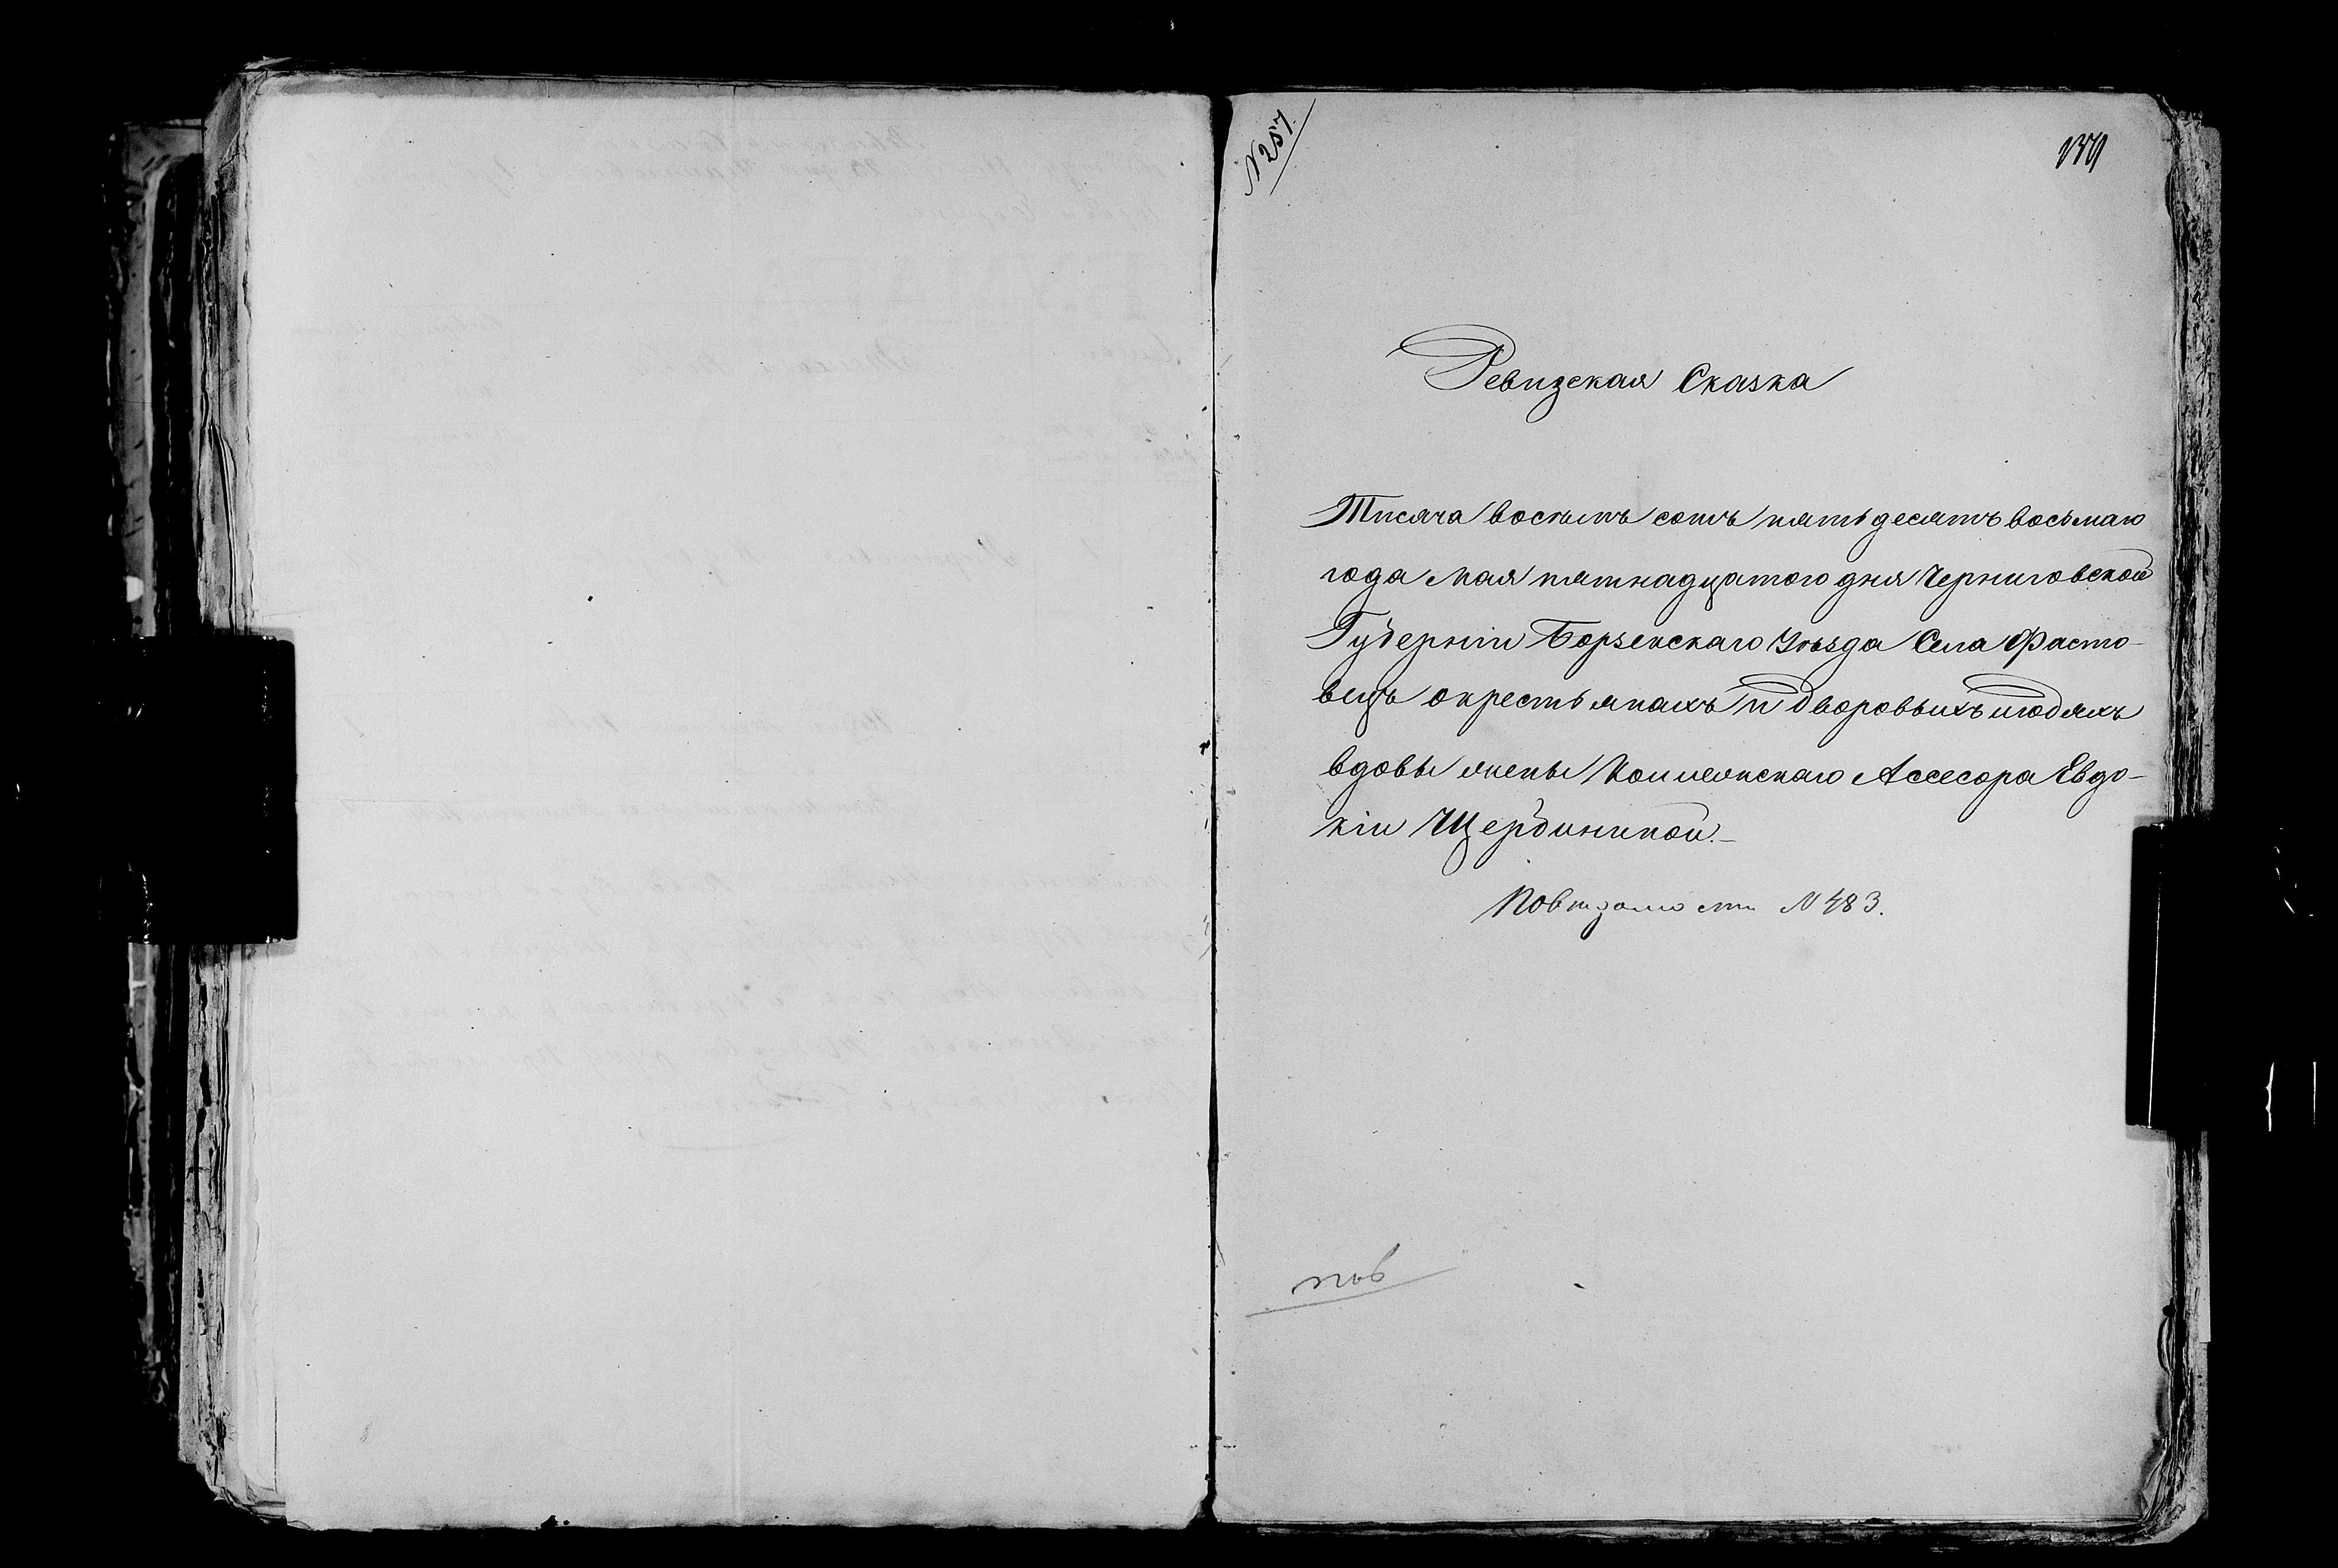 N 257.
Ревизская Сказка
Тисяча восъмъ сотъ пятьдесятъ восьмаго
года мая пятнадцатого дня Черниговской
Губерніи Борзенскаго Уѣзда Села Фасто-
вецъ окрестьянахъ и дворовыхъ людяхъ
вдовы жены Коллежскаго Ассесора Евдо-
кіи Щербининой.-
По вѣдомости N 483.